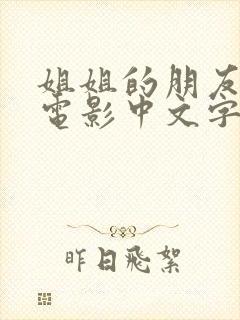 姐姐的朋友
電影中文字
昨日飛絮